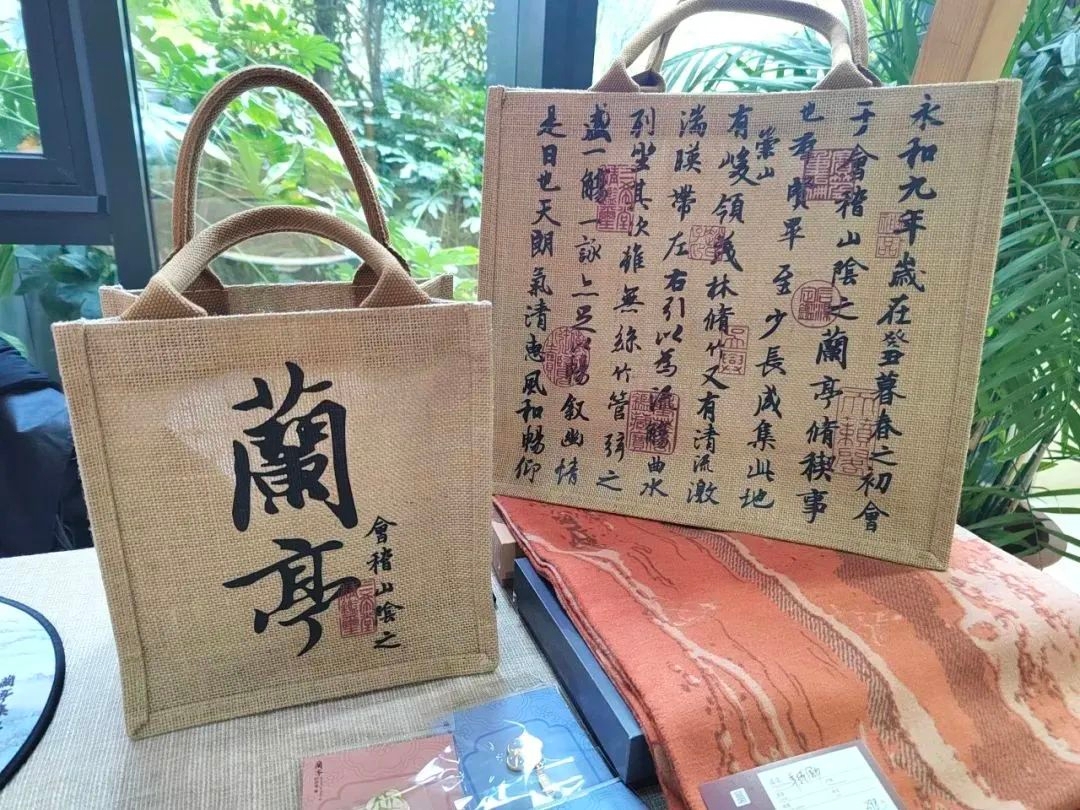 會稽山陰之
蘭亭
永和九年歲在癸丑暮春之初會
于會稽山陰之蘭亭脩稧事
也羣賢畢至少長咸集此地
有崇山峻領茂林脩竹又有清流激
湍暎帶左右引以為流觴曲水
列坐其次雖無絲竹管弦之
盛一觴一詠亦足以暢敘幽情
是日也天朗氣清惠風和暢仰
蘭亭集
蘭亭